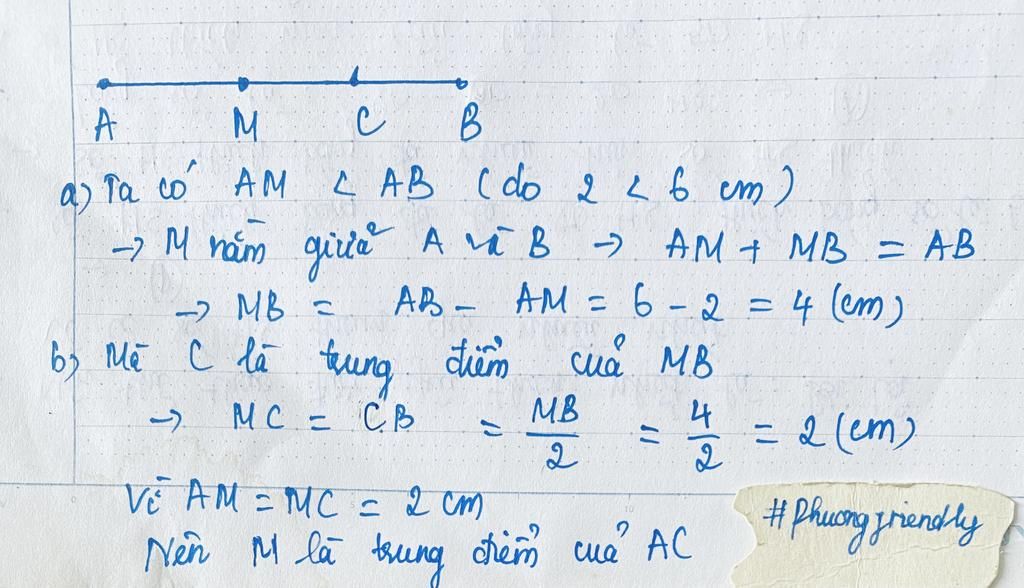 A M C B
a) Ta có AM < AB (do 2 < 6 cm)
→ M nằm giữa A và B → AM + MB = AB
→ MB = AB - AM = 6 - 2 = 4 (cm)
b) Mà C là trung điểm của MB
→ MC = CB = MB/2 = 4/2 = 2 (cm)
Vì AM = MC = 2 cm
Nên M là trung điểm của AC
#Phuongfriendly